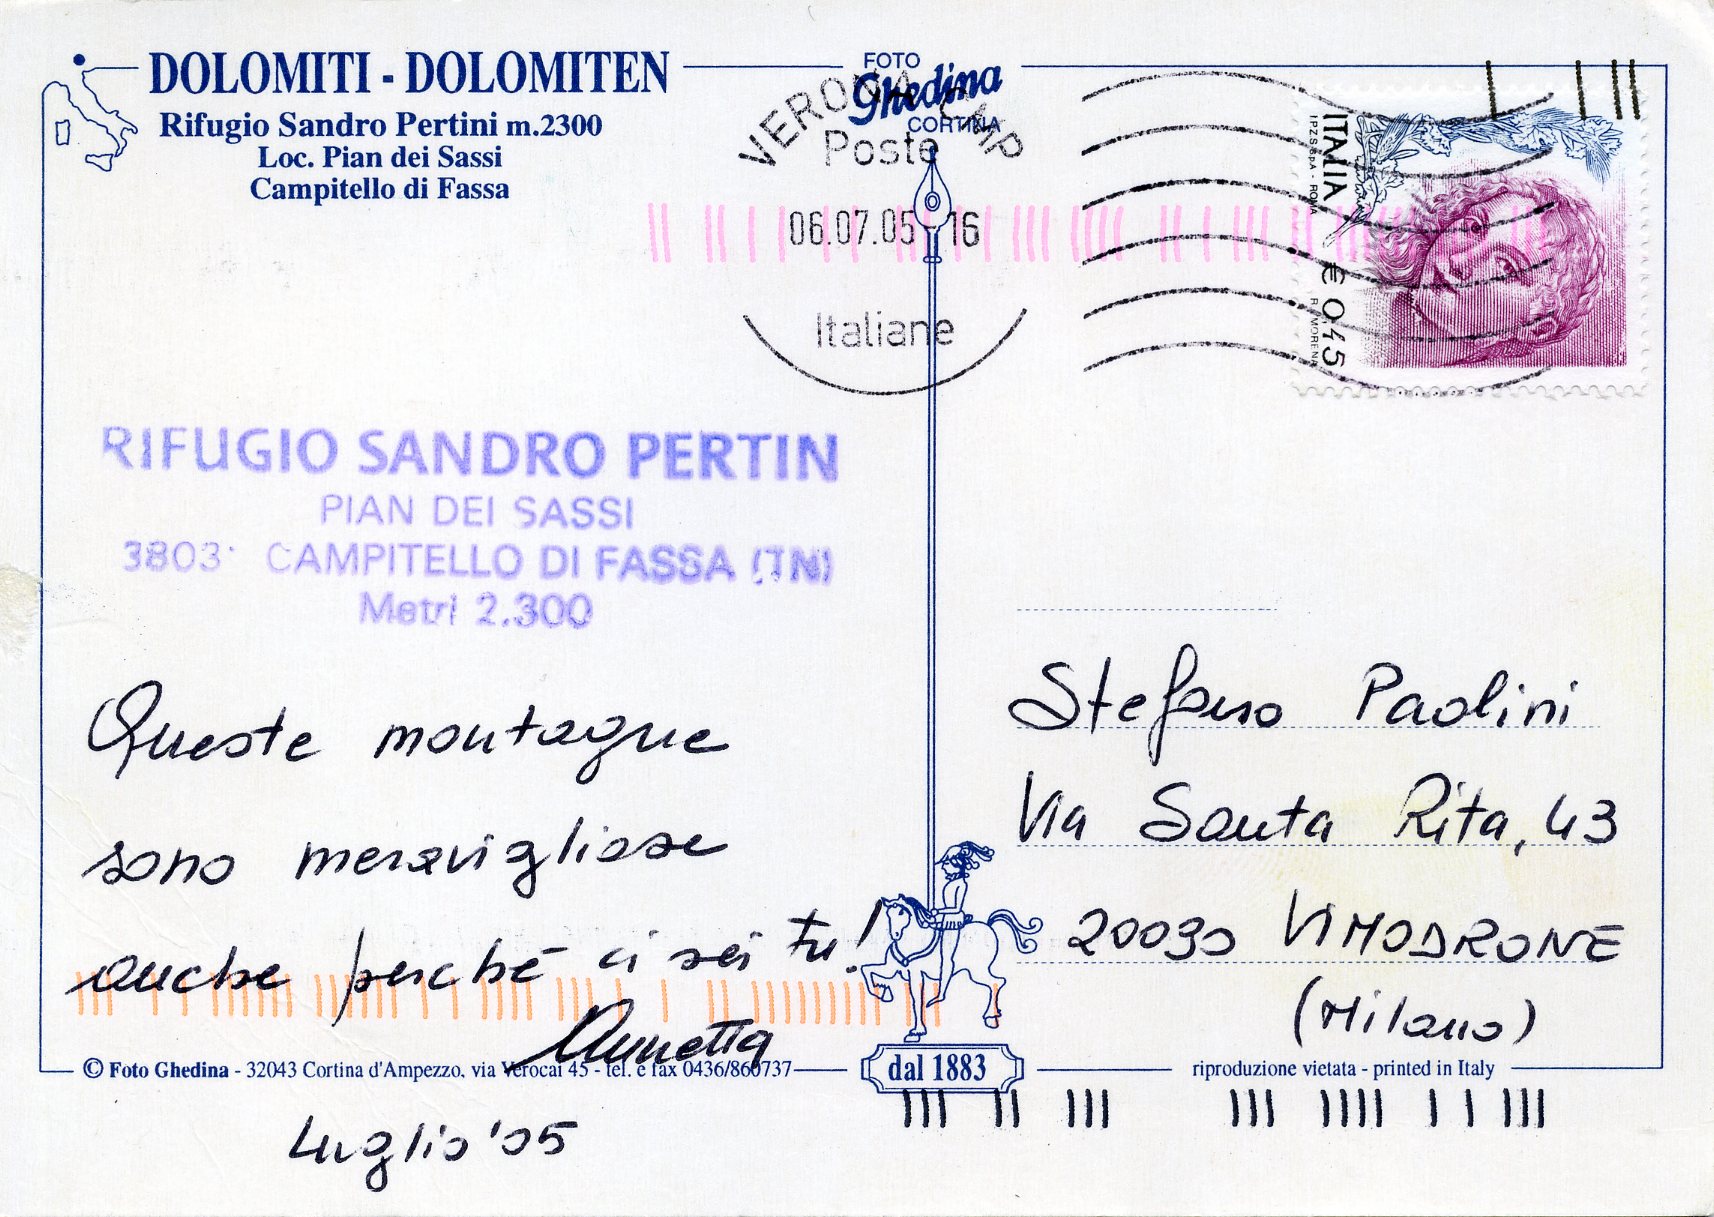 DOLOMITI - DOLOMITEN
Rifugio Sandro Pertini m.2300
Loc. Pian dei Sassi
Campitello di Fassa
FOTO
Ghedina
CORTINA
VERONA CMP
Poste
06.07.05 16
Italiane
ITALIA
I.P.Z.S. S.p.A. - ROMA
€ 0,45
R. MORENA
RIFUGIO SANDRO PERTIN
PIAN DEI SASSI
3803 CAMPITELLO DI FASSA (TN)
Metri 2.300
Queste montagne
sono meravigliose
anche perché ci sei tu!
Annetta
Luglio '05
Stefano Paolini
Via Santa Rita, 43
20090 VIMODRONE
(Milano)
© Foto Ghedina - 32043 Cortina d'Ampezzo, via Verocai 45 - tel. e fax 0436/860737
dal 1883
riproduzione vietata - printed in Italy